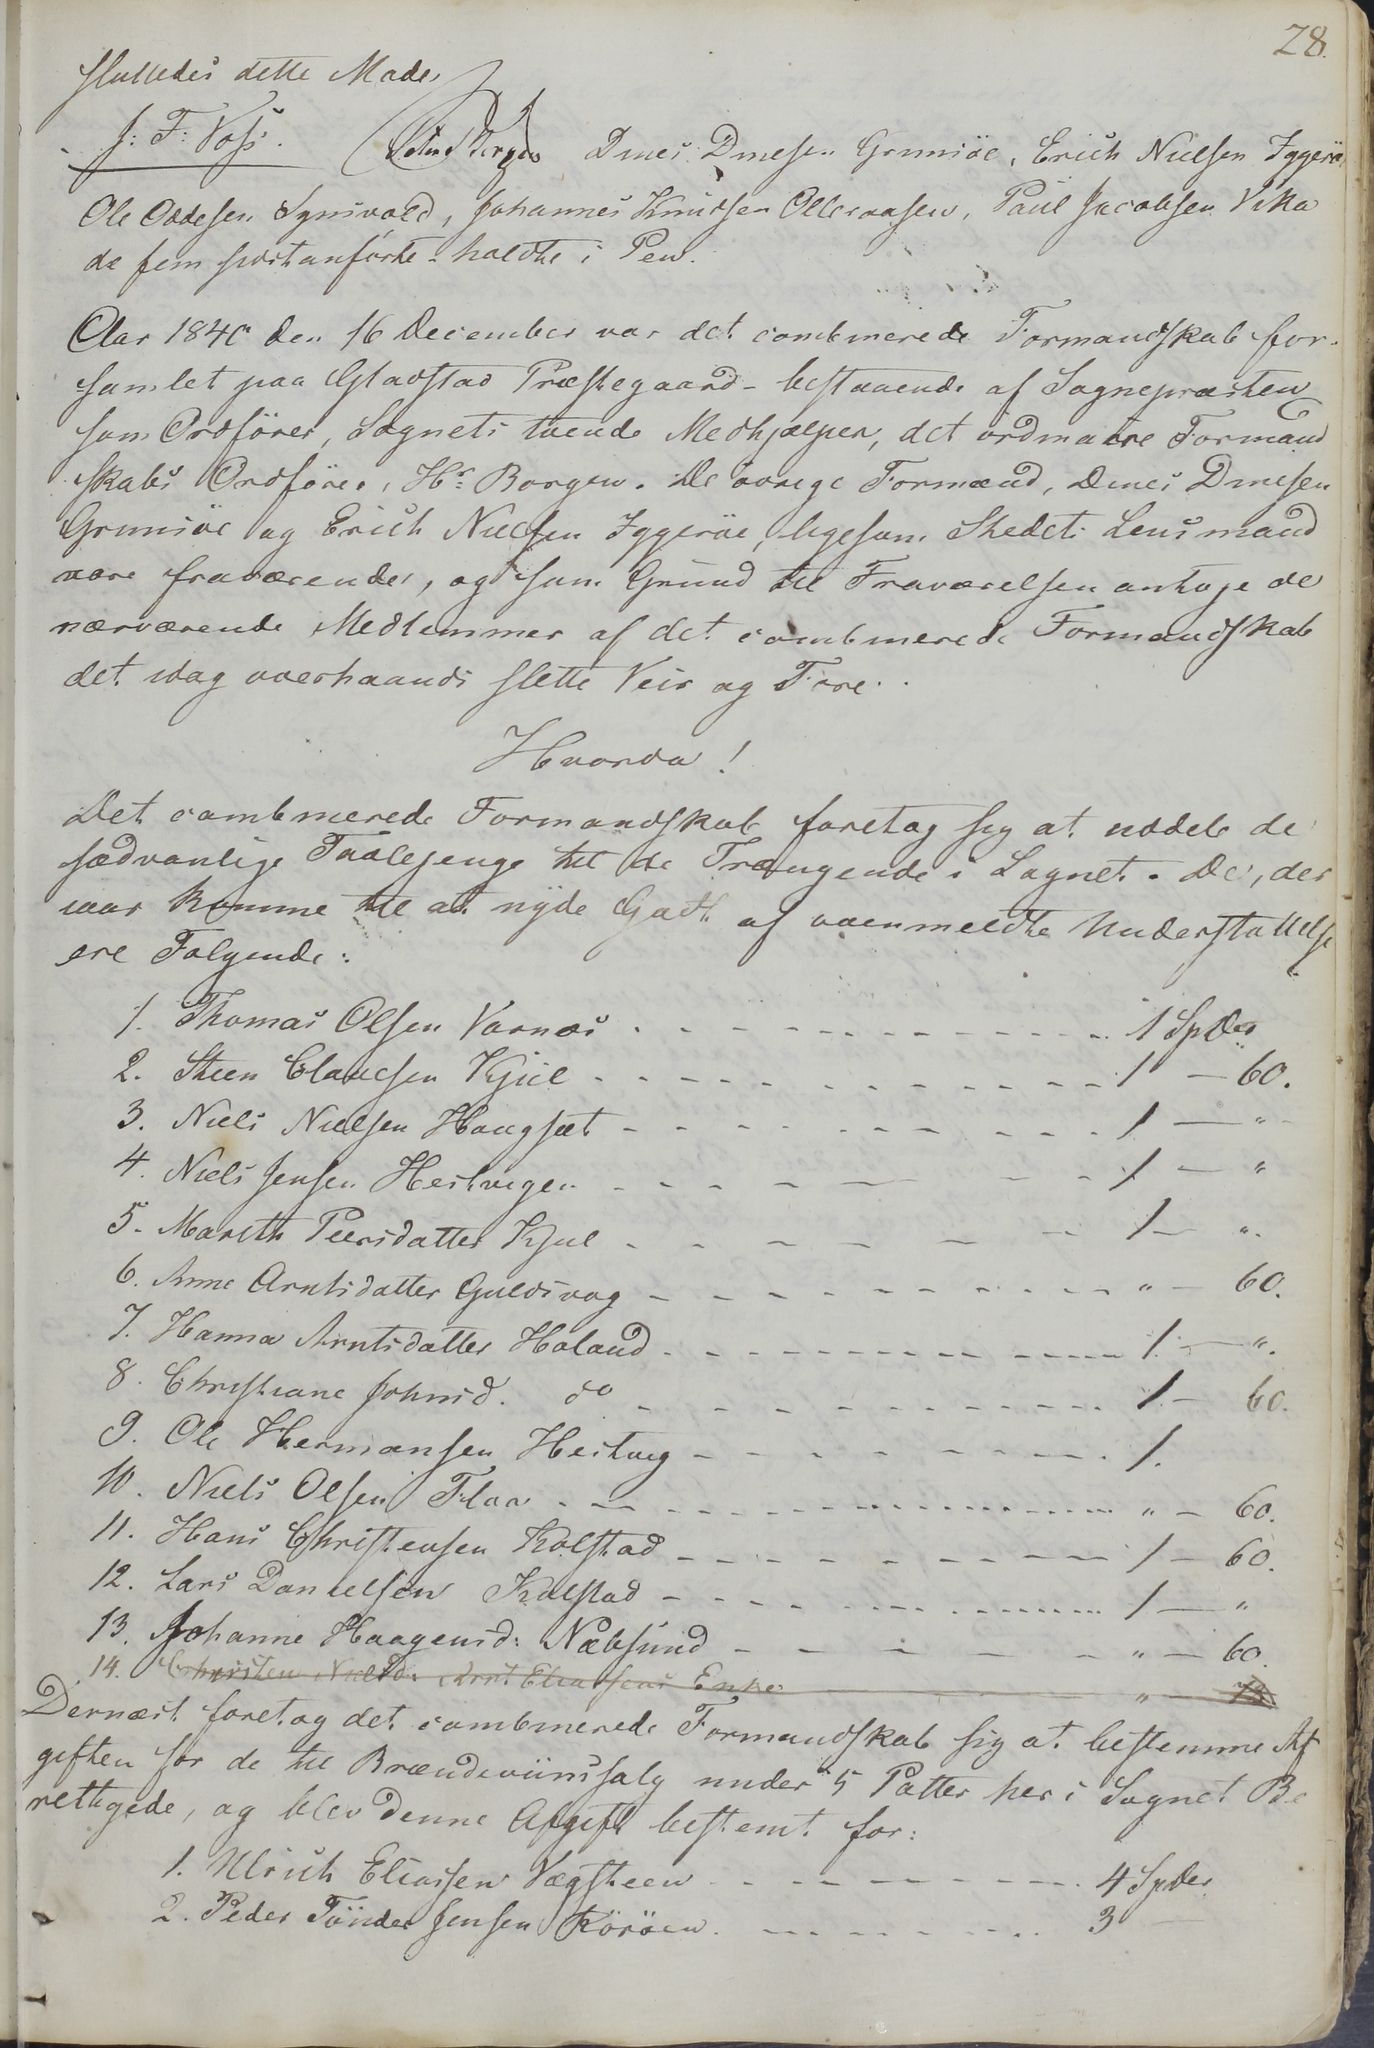 28.
sluttedes dette Møde,
J: F: Voss. Dines Dinesen Grunsöe, Erich Nielsen Iggeröe
Ole Oddesen Synsvold, Johannes Knudsen Olleraasen, Paul Jacobsen Vika
de fem sidstanförte holdte i Pen.
Aar 1840 den 16 December var det combinerede Formandskab for-
samlet paa Gladstad Præstegaard bestaaende af Sognepræsten
som Ordförer, Sognets tvende Medhjælper, det ordinaire Formand
skabs Ordförer, Hr Borgen. De övrige Formænd, Dines Dinesen
Grunsöe og Erich Nielsen Iggeröe, ligesom Stedets Lensmand
vare fraværende, og som Grund til Fraværelsen antoge de
nærværende Medlemmer af det combinerede Formandskab
det idag overhaands slette Veir og Före.
Hvorda!
Det combinerede Formandskab foretog sig at uddele de
sædvanlige Fødepenge til de Trængende i Sognet. De, der
iaar komme til at nyde Godt af ovenmeldte Understøttelse
ere Følgende:
1. Thomas Olsen Varnæs - - - 1 Spdr
2. Steen Clausen Kjul - - - 1 — 60.
3. Niels Nielsen Haugsæt - - - 1 — "
4. Niels Jensen Hestvigen - - - 1 — "
5. Marith Peersdatter Kjul - - - 1 — "
6. Anne Arntsdatter Guldsvog - - - " — 60.
7. Hanna Arntsdatter Holand - - - 1 — "
8. Christiane Johnsd. do - - - 1 — 60.
9. Ole Hermansen Hestvig - - - 1.
10. Niels Olsen Flaa - - - " — 60.
11. Hans Christensen Kolstad - - - 1 — 60.
12. Lars Danielsen Kolstad - - - 1 — "
13. Johanne Haagensd: Næbsund - - - " — 60.
14. Christen Arnt Eliassens Enke "
Dernæst foretog det combinerede Formandskab sig at bestemme Af
giften for de til Brændeviinssalg under 5 Potter her i Sognet Be
rettigede, og blev denne Afgift bestemt for:
1. Ulrich Eliassen Vægsteen - - - 4 Spdr
2. Peder Tönder Jensen Köröen - - - 3 —